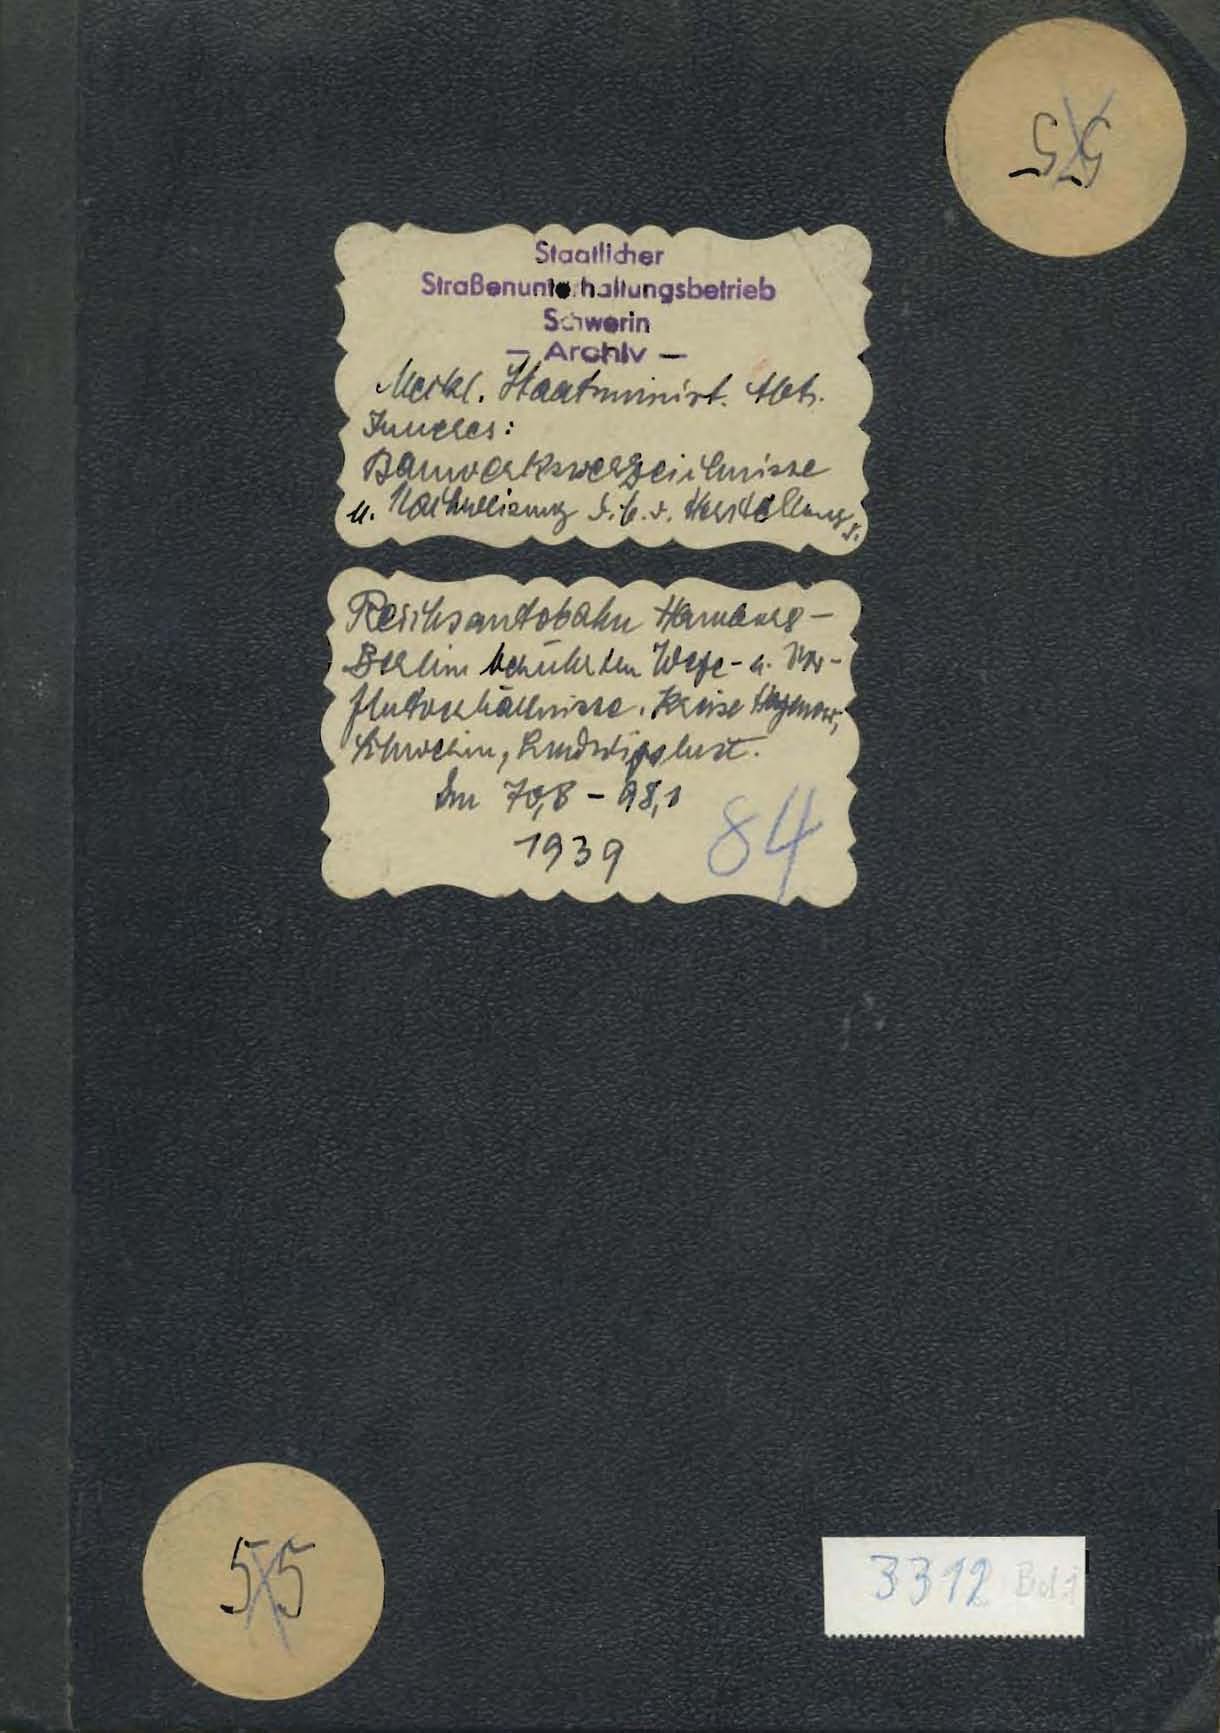 55
Staatlicher
Straßenunterhaltungsbetrieb
Schwerin
— Archiv —
Meckl. Staatsminist. Abt.
Inneres:
Bauwerksverzeichnisse
u. Nachweisung d. b. d. Herstellung d.
Reichsautobahn Hamburg-
Berlin berührten Wege- u. Vor-
flutverhältnisse. Kreise Hagenow,
Schwerin, Ludwigslust.
km 70,8 - 98,1
1939
84
55
3312 Bd.1